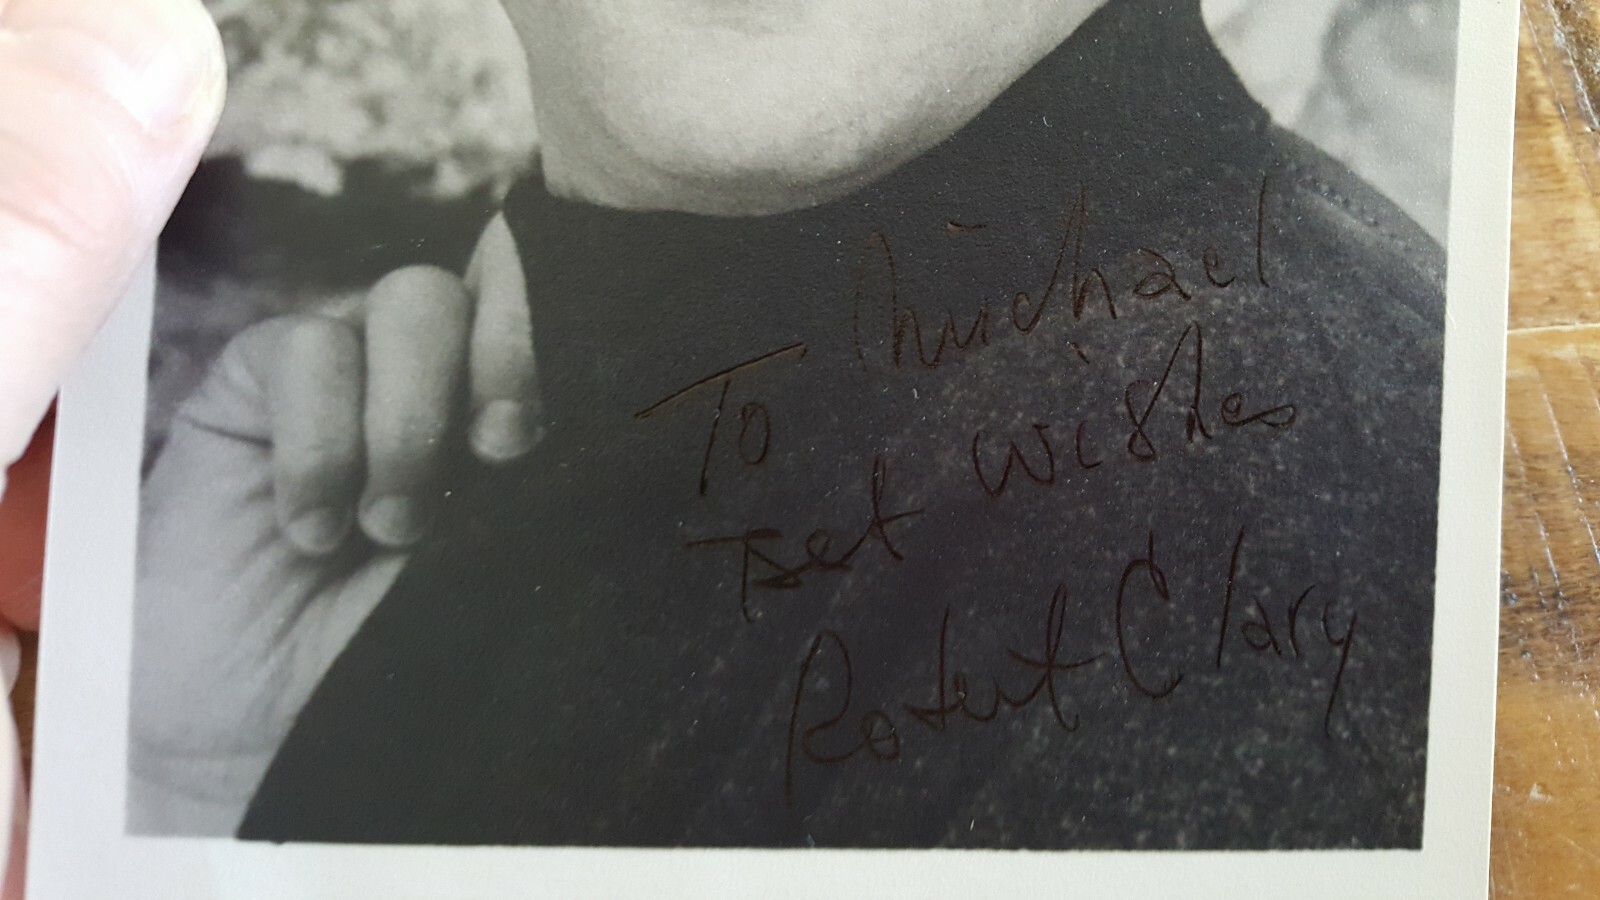 To Michael
Best Wishes
Robert Clary